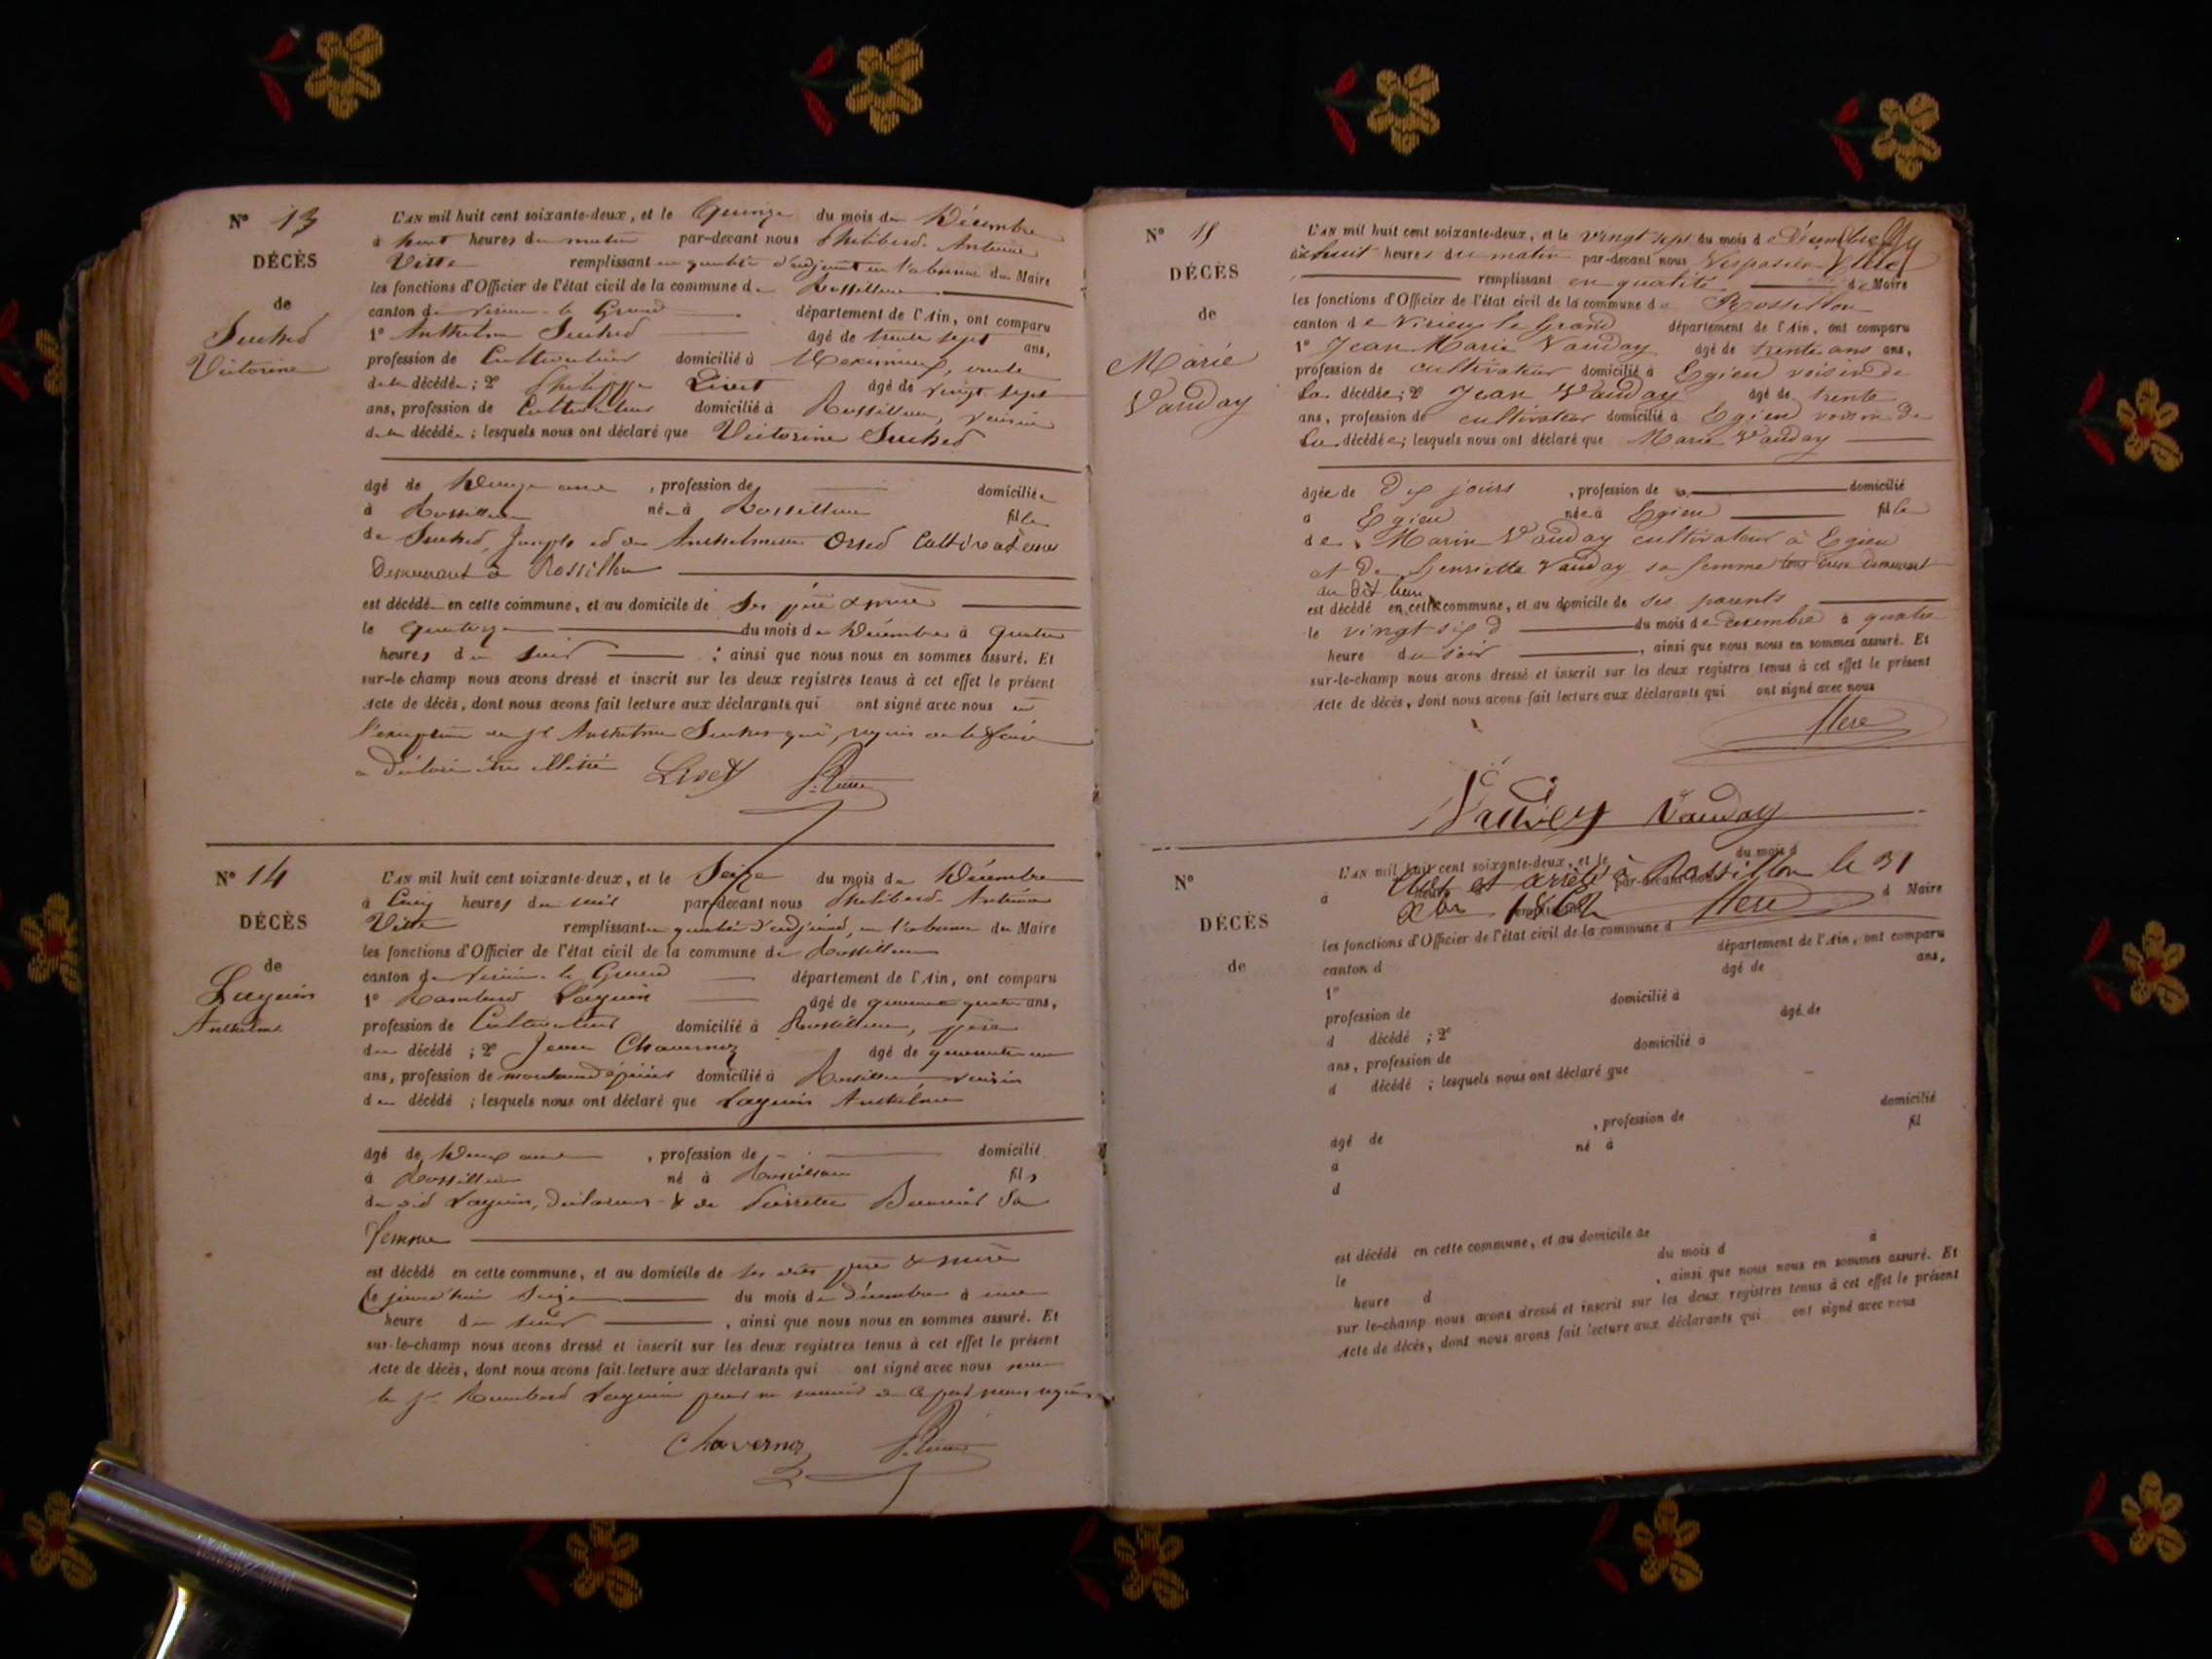 N° 13
DÉCÈS
de
Suchet
Victorine
L'AN mil huit cent soixante-deux, et le Quinze du mois de Décembre
à huit heures du matin par-devant nous Philibert Antoine
Vitte remplissant en qualité d'adjoint en l'absence du Maire
les fonctions d'Officier de l'état civil de la commune de Rossillon
canton de Virieu le Grand département de l'Ain, ont comparu
1° Anthelme Suchet âgé de trente sept ans,
profession de Cultivateur domicilié à
de la décédée ; 2° Philippe Livet âgé de vingt sept
ans, profession de Cultivateur domicilié à Rossillon, voisin
de la décédée ; lesquels nous ont déclaré que Victorine Suchet
âgé de Douze ans , profession de domiciliée
à Rossillon née à Rossillon fille
de Suchet, Joseph et de Anthelmette Orset Cultivateurs
Demeurant à Rossillon
est décédée en cette commune, et au domicile de Ses père & mère
le Quatorze du mois de Décembre à Quatre
heures du Soir ; ainsi que nous nous en sommes assuré. Et
sur-le champ nous avons dressé et inscrit sur les deux registres tenus à cet effet le présent
Acte de décès, dont nous avons fait lecture aux déclarants qui ont signé avec nous à
l'exception du Sr Anthelme Suchet qui, requis de le faire
a déclaré être illétré Livet
N° 14
DÉCÈS
de
Laguin
Anthelme
L'AN mil huit cent soixante-deux, et le Seize du mois de Décembre
à Cinq heures du soir par-devant nous Philibert Antoine
Vitte remplissant en qualité d'adjoint, en l'absence du Maire
les fonctions d'Officier de l'état civil de la commune de Rossillon
canton de Virieu le Grand département de l'Ain, ont comparu
1° Rambert Laguin âgé de quarante quatre ans,
profession de Cultivateur domicilié à Rossillon, père
du décédé ; 2° Jean Chavernoz âgé de quarante un
ans, profession de marchand épicier domicilié à Rossillon voisin
du décédé ; lesquels nous ont déclaré que Laguin Anthelme
âgé de Deux ans , profession de domicilié
à Rossillon né à Rossillon fils
du dit Laguin, déclarant & de Pierrette sa
femme
est décédé en cette commune, et au domicile de ses dits père & mère
le jourd'hui Seize du mois de Décembre à une
heure du soir , ainsi que nous nous en sommes assuré. Et
sur-le-champ nous avons dressé et inscrit sur les deux registres tenus à cet effet le présent
Acte de décès, dont nous avons fait lecture aux déclarants qui ont signé avec nous non
le Sr Rambert Laguin pour ne savoir de ce par nous requis
Chavernoz
N° 15
DÉCÈS
de
Marie
Vauday
L'AN mil huit cent soixante-deux, et le vingt sept du mois de Décembre
à huit heures du matin par-devant nous Vespasien
remplissant en qualité de Maire
les fonctions d'Officier de l'état civil de la commune de Rossillon
canton de Virieu le Grand département de l'Ain, ont comparu
1° Jean Marie Vauday âgé de trente ans ans,
profession de cultivateur domicilié à Egieu voisin de
la décédée ; 2° Jean Vauday âgé de trente
ans, profession de cultivateur domicilié à Egieu voisin de
la décédée ; lesquels nous ont déclaré que Marie Vauday
âgée de Dix jours , profession de domicilié
à Egieu née à Egieu fille
de Marin Vauday cultivateur à Egieu
et De Henriette Vauday sa femme tous deux demeurant
au dit lieu
est décédé en cette commune, et au domicile de ses parents
le vingt six d du mois de décembre à quatre
heure du soir , ainsi que nous nous en sommes assuré. Et
sur-le-champ nous avons dressé et inscrit sur les deux registres tenus à cet effet le présent
Acte de décès, dont nous avons fait lecture aux déclarants qui ont signé avec nous
Vauday Vauday
N°
DÉCÈS
de
L'AN mil huit cent soixante-deux, et le du mois d
Clos et arrêté à Rossillon le 31
à heure d par-devant nous
Xbre 1862
remplissant d Maire
les fonctions d'Officier de l'état civil de la commune d
canton d département de l'Ain, ont comparu
1° âgé de ans,
profession de domicilié à
d décédé ; 2° âgé de
ans, profession de domicilié à
d décédé ; lesquels nous ont déclaré que
âgé de , profession de domicilié
à né à fil
d
est décédé en cette commune, et au domicile de
le du mois d à
heure d , ainsi que nous nous en sommes assuré. Et
sur le-champ nous avons dressé et inscrit sur les deux registres tenus à cet effet le présent
Acte de décès, dont nous avons fait lecture aux déclarants qui ont signé avec nous